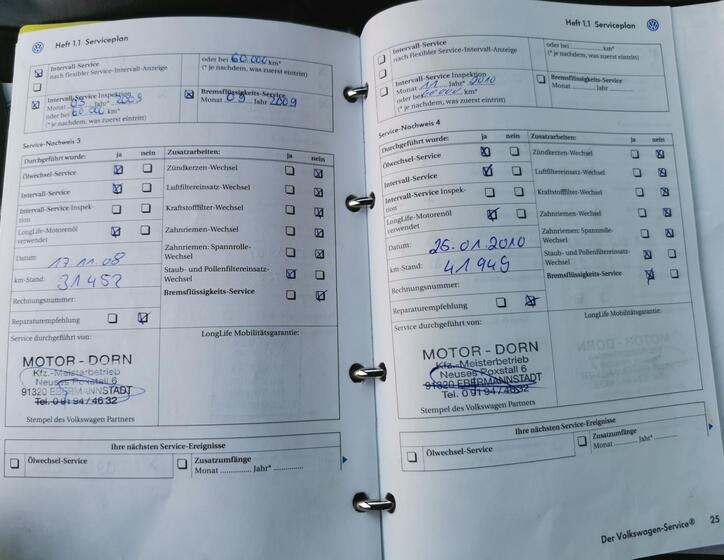 Heft 1.1 Serviceplan
Intervall-Service
nach flexibler Service-Intervall-Anzeige
oder bei 60.000 km*
(* je nachdem, was zuerst eintritt)
Intervall-Service Inspektion
Monat 09 Jahr* 2009
oder bei 60 000 km*
(*je nachdem, was zuerst eintritt)
Bremsflüssigkeits-Service
Monat 09 Jahr 2009
Service-Nachweis 3
Durchgeführt wurde: ja nein
Ölwechsel-Service
Intervall-Service
Intervall-Service Inspek-
tion
LongLife-Motorenöl
verwendet
Datum: 17.11.08
km-Stand: 31452
Rechnungsnummer:
Reparaturempfehlung
Zusatzarbeiten: ja nein
Zündkerzen-Wechsel
Luftfiltereinsatz-Wechsel
Kraftstofffilter-Wechsel
Zahnriemen-Wechsel
Zahnriemen: Spannrolle-
Wechsel
Staub- und Pollenfiltereinsatz-
Wechsel
Bremsflüssigkeits-Service
Service durchgeführt von:
MOTOR - DORN
Kfz.-Meisterbetrieb
Neuses Poxstall 6
91320 EBERMANNSTADT
Tel. 09194/4632
Stempel des Volkswagen Partners
LongLife Mobilitätsgarantie:
Ihre nächsten Service-Ereignisse
Ölwechsel-Service
Zusatzumfänge
Monat ........... Jahr* ...............
Heft 1.1 Serviceplan
Intervall-Service
nach flexibler Service-Intervall-Anzeige
oder bei .................... km*
(* je nachdem, was zuerst eintritt)
Intervall-Service Inspektion
Monat 11 Jahr* 2010
oder bei km*
(*je nachdem, was zuerst eintritt)
Bremsflüssigkeits-Service
Monat ........... Jahr ...........
Service-Nachweis 4
Durchgeführt wurde: ja nein
Ölwechsel-Service
Intervall-Service
Intervall-Service Inspek-
tion
LongLife-Motorenöl
verwendet
Datum: 25.01.2010
km-Stand: 41949
Rechnungsnummer:
Reparaturempfehlung
Zusatzarbeiten: ja nein
Zündkerzen-Wechsel
Luftfiltereinsatz-Wechsel
Kraftstofffilter-Wechsel
Zahnriemen-Wechsel
Zahnriemen: Spannrolle-
Wechsel
Staub- und Pollenfiltereinsatz-
Wechsel
Bremsflüssigkeits-Service
Service durchgeführt von:
MOTOR - DORN
Kfz.-Meisterbetrieb
Neuses Poxstall 6
91320 EBERMANNSTADT
Tel. 09194/4632
Stempel des Volkswagen Partners
LongLife Mobilitätsgarantie:
Ihre nächsten Service-Ereignisse
Ölwechsel-Service
Zusatzumfänge
Monat ........... Jahr* ...............
Der Volkswagen-Service® 25